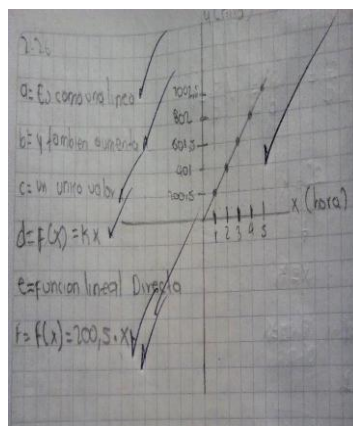 2.26
a= Es como una linea
b= y tambien aumenta
c= un unico valor
d= f(x) = kx
e= funcion lineal Directa
f= f(x)=200,5.x
1002,5
802
601,5
401
200,5
x (hora)
1 2 3 4 5